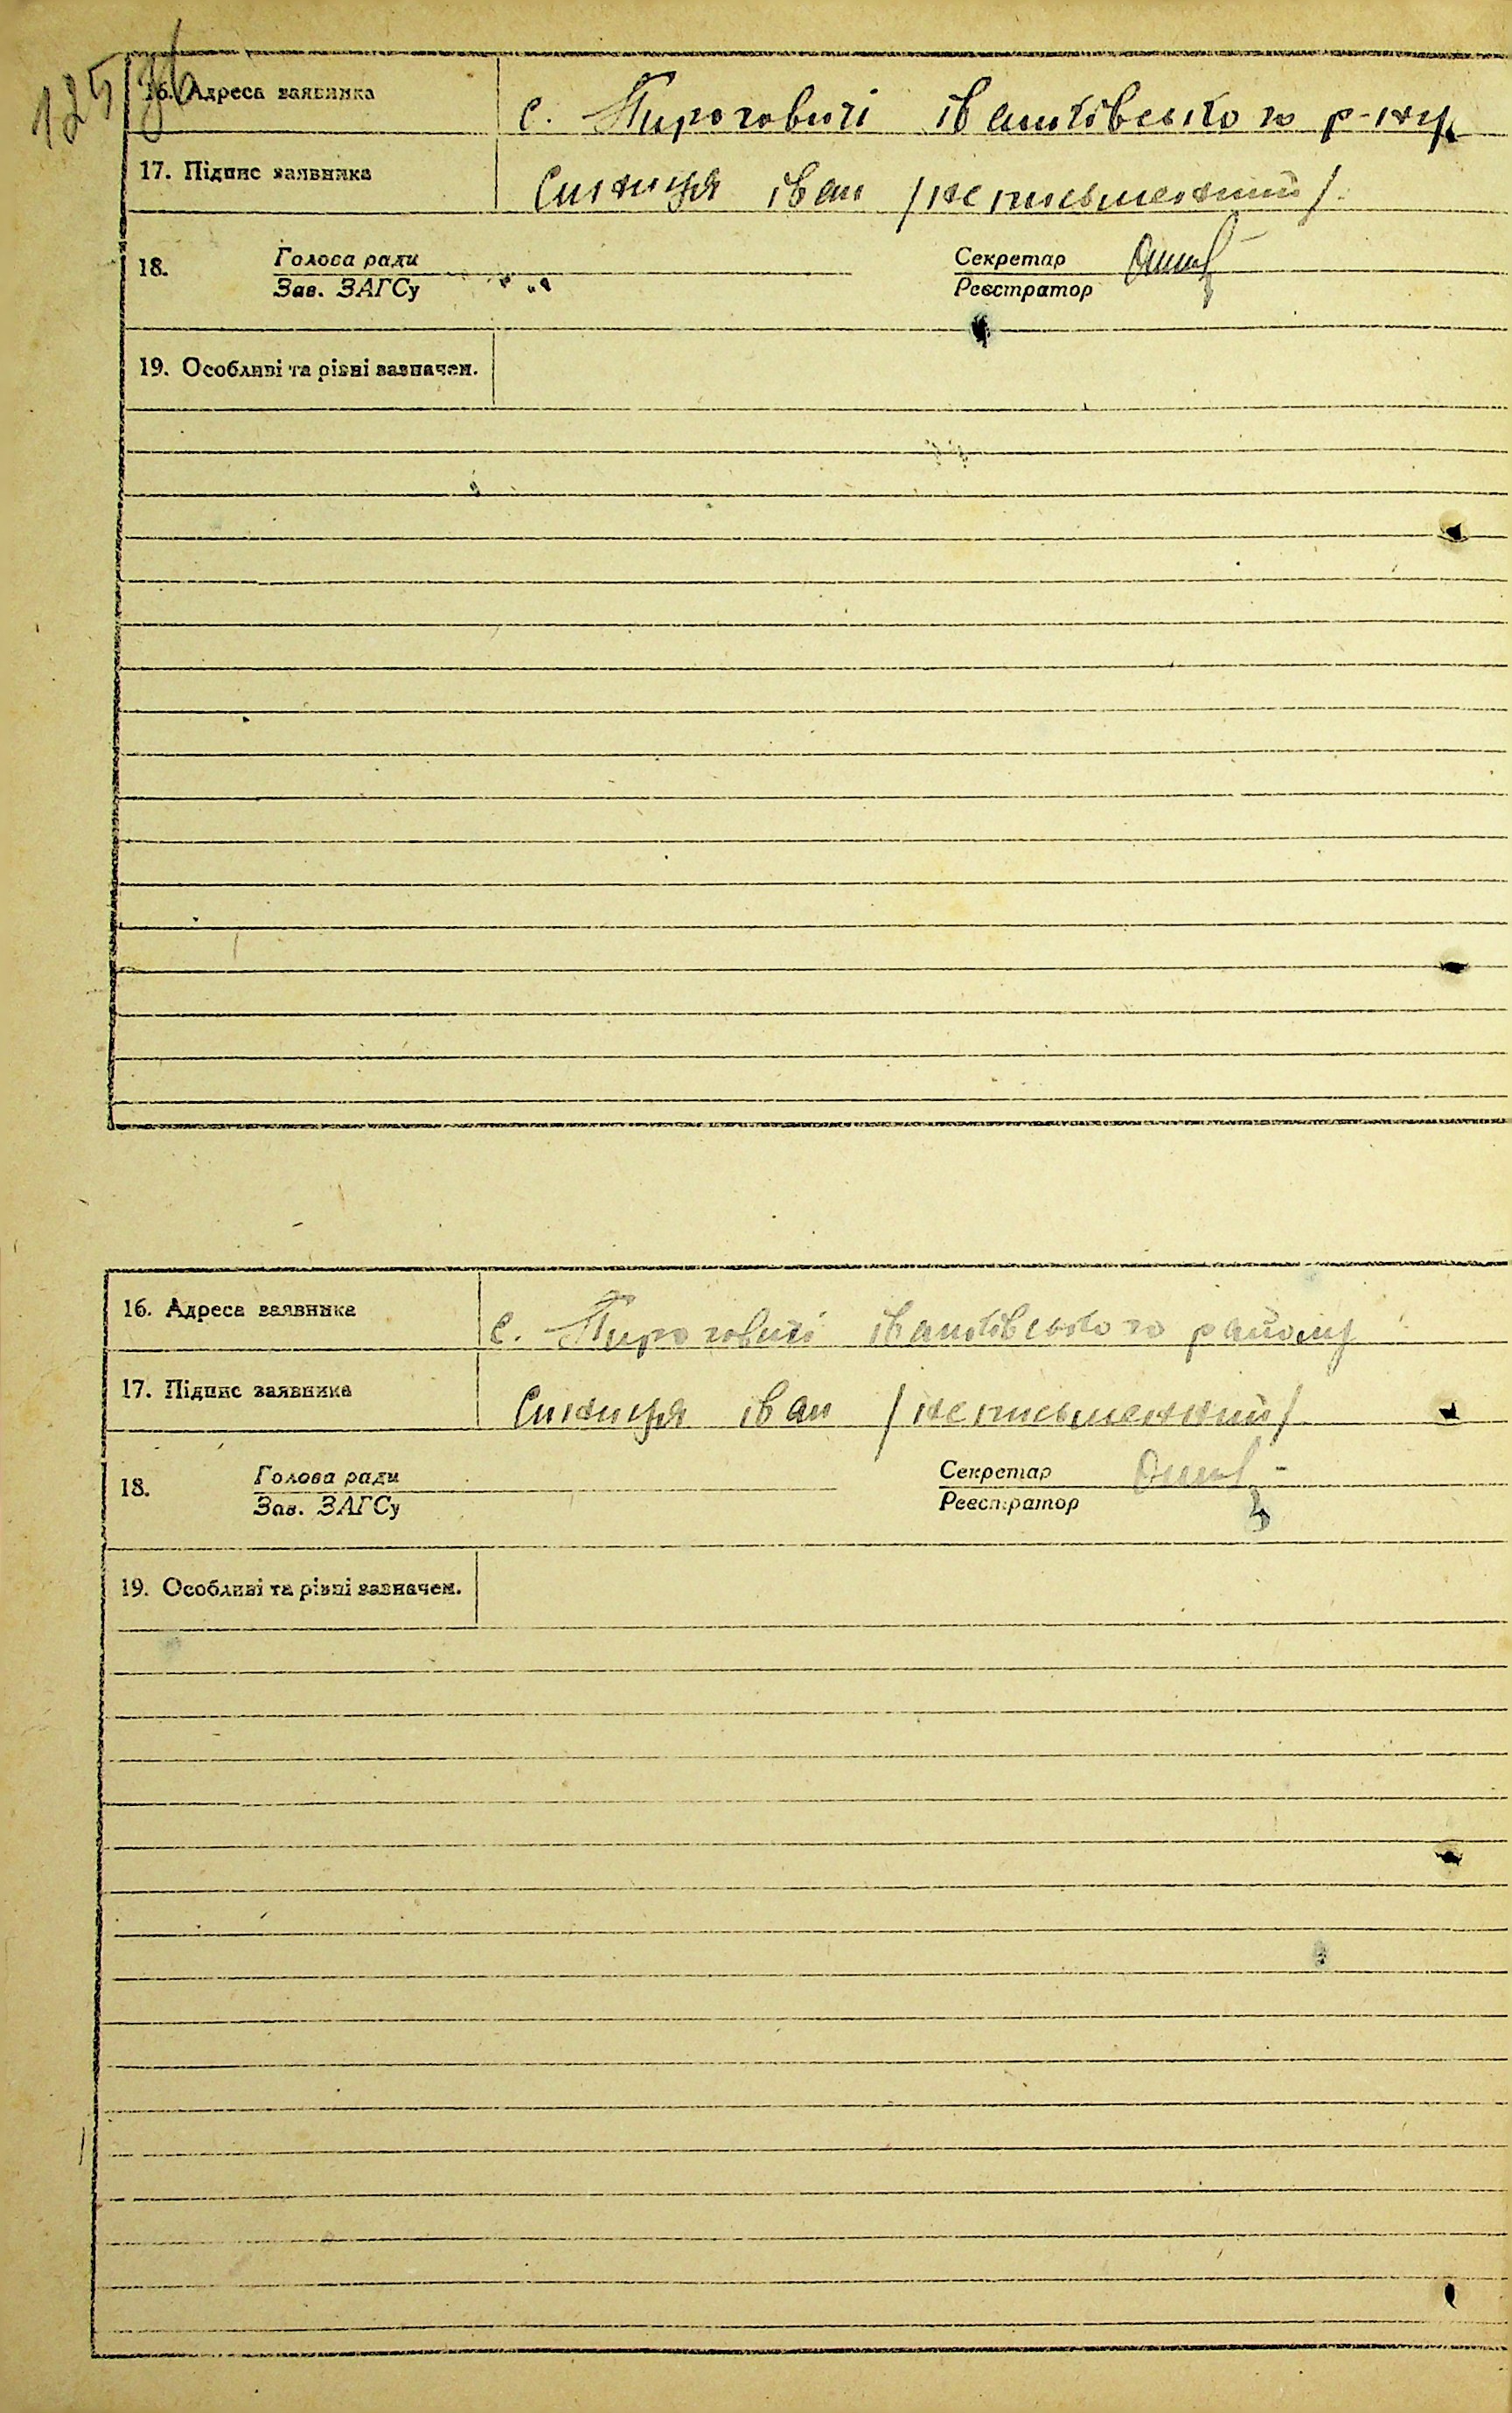 125 зв
16. Адреса заявника с. Пироговичі іванківського р-ну
17. Підпис заявника Синиця іван /неписьменний/.
18. Голова ради Секретар
Зав. ЗАГСу Реєстратор
19. Особливі та різні зазначен.
16. Адреса заявника с. Пироговичі іванківського району
17. Підпис заявника Синиця іван /неписьменний/.
18. Голова ради Секретар
Зав. ЗАГСу Реєстратор
19. Особливі та різні зазначен.